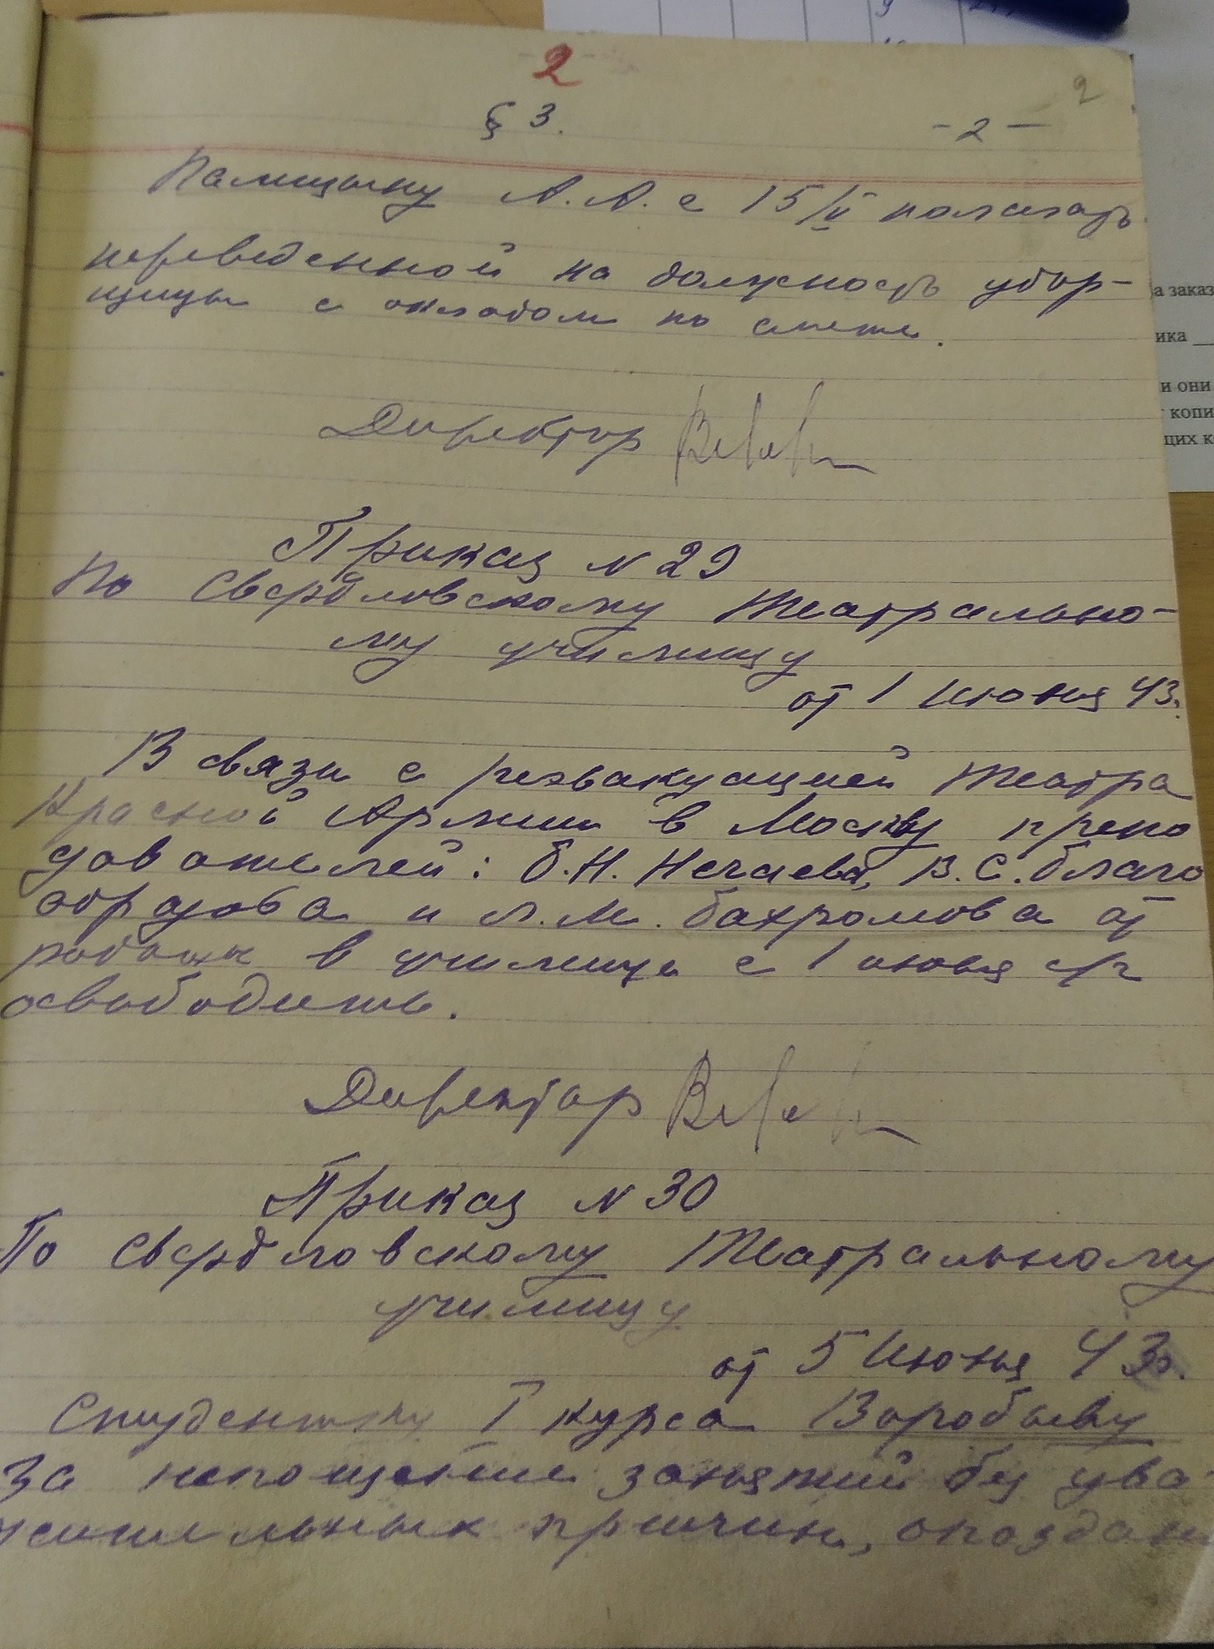 2
2
§ 3.
- 2 -
А.А. с 15/V полагать
переведенной на должность убор-
щицы с окладом по смете.
Директор
Приказ N 29
По Свердловскому Театрально-
му училищу
от 1 Июня 43.
В связи с реэвакуацией театра
Красной Армии в Москву препо
давателей: Б.Н. Нечаева, В.С. Благо
образова и Л.М. Бахромова от
работы в училище с 1 июня с/г
освободить.
Директор
Приказ N 30
По Свердловскому Театральному
училищу
от 5 Июня 43.
Студентку I курса Воробьеву
За непощение занятий без ува-
жительных причин, опоздан
а заказ
ика
и они
копи
щих к